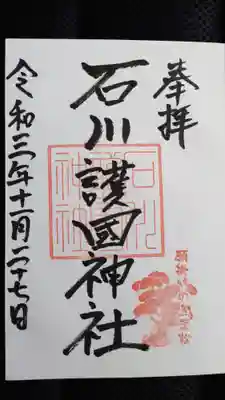 奉拝
石川護國神社
令和三年十一月二十七日